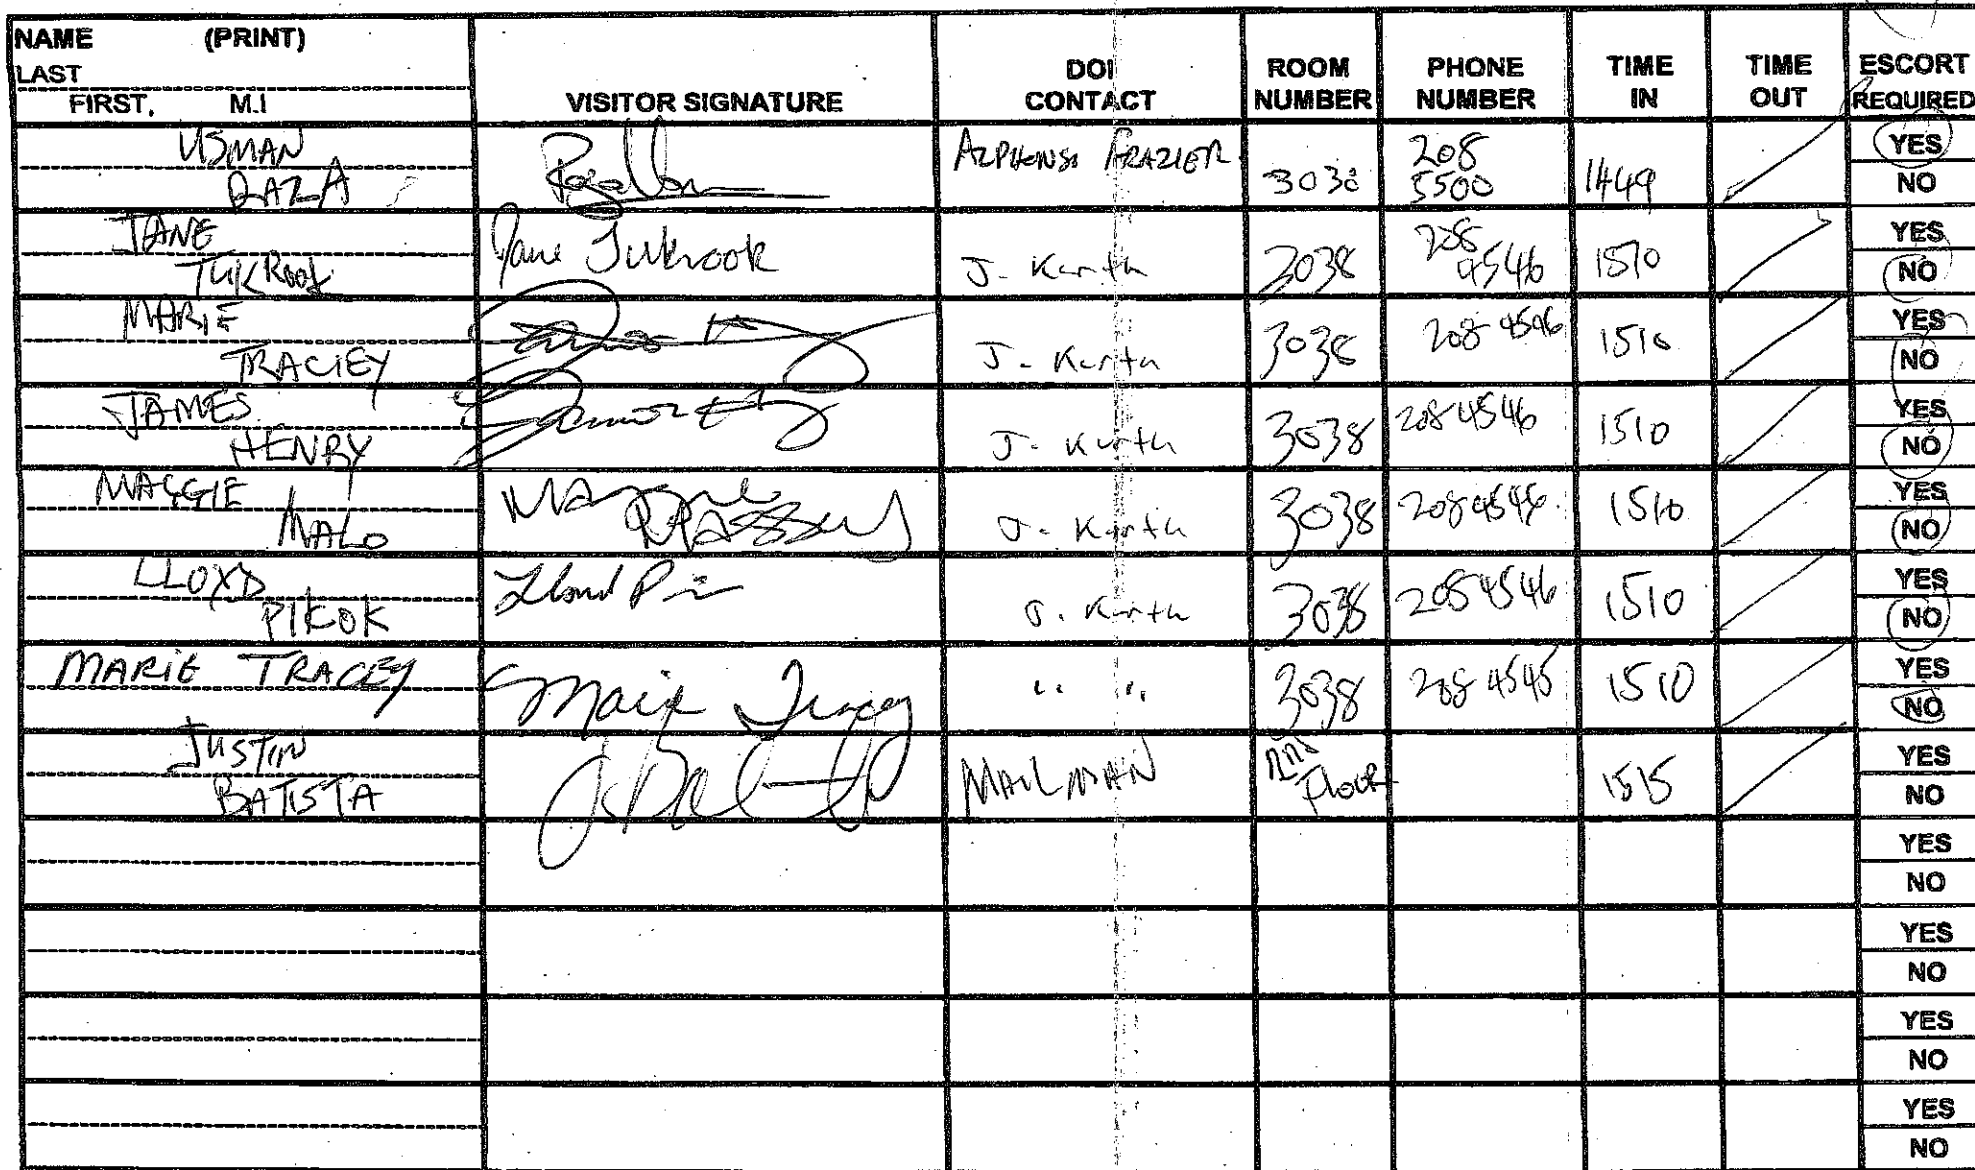 NAME (PRINT)
LAST
FIRST, M.I
VISITOR SIGNATURE
DOI
CONTACT
ROOM
NUMBER
PHONE
NUMBER
TIME
IN
TIME
OUT
ESCORT
REQUIRED
USMAN
RAZA
ALPHONSO FRAZIER
3038
208
5500
1449
YES
NO
JANE
TUKROOK
Jane Tukrook
J. Kurth
3038
208
4546
1510
YES
NO
MARIE
TRACIEY
J. Kurth
3038
208 4546
1510
YES
NO
JAMES
HENRY
J. Kurth
3038
208 4546
1510
YES
NO
MAGGIE
MALO
J. Kurth
3038
208 4546
1510
YES
NO
LLOYD
PIKOK
J. Kurth
3038
208 4546
1510
YES
NO
MARIE TRACEY
Marie Tracey
" "
3038
208 4545
1510
YES
NO
JUSTIN
BATISTA
MAILMAN
Floor
1515
YES
NO
YES
NO
YES
NO
YES
NO
YES
NO